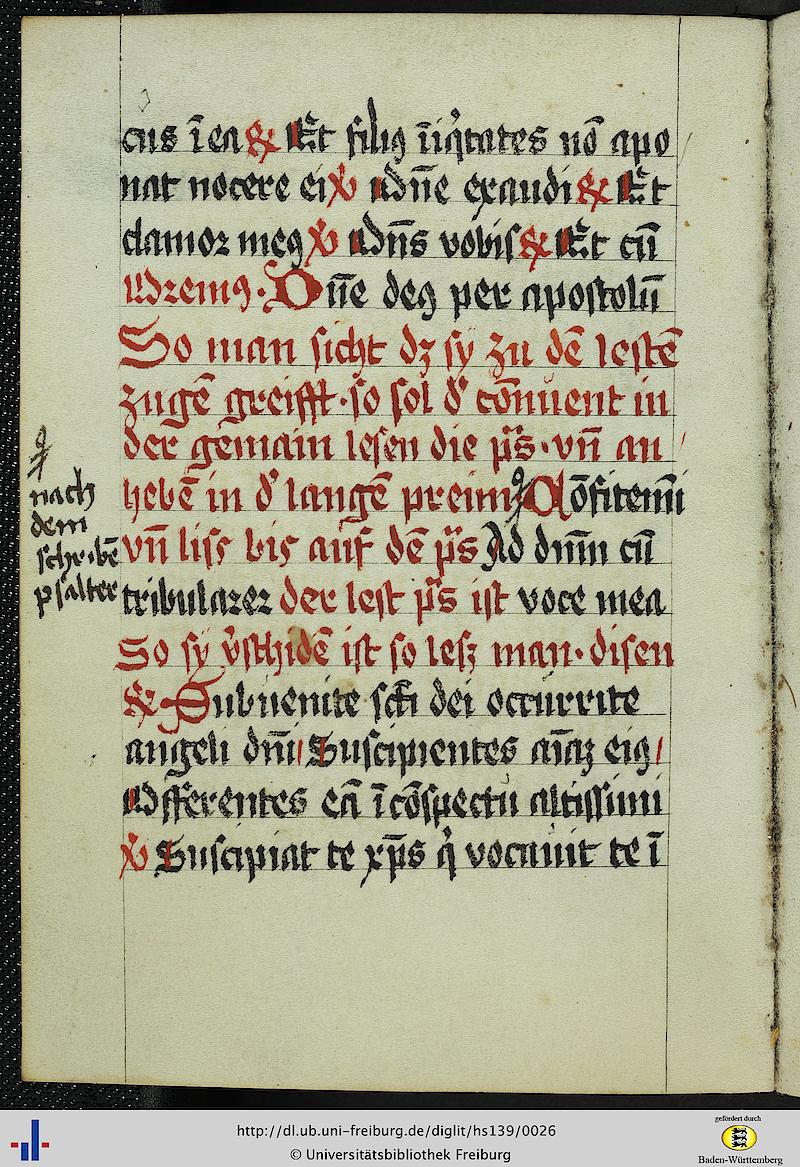 cus ī ea ℟ Et filiꝰ īiq̇tates nō apo
nat nocere ei ℣ Dn̄e exaudi ℟ Et
clamor meꝰ ℣ Dn̄s vobis ℟ Et cū
Oremꝰ · Dn̄e deꝰ per apostolū
So man sicht dz sy zu dē lestē
zugē greifft · so sol d̾ cōnuent in
der gemain lesen die p̄s · vn̄ an
hebē in d̾ langē preim Cōfitemi
nach
dem
schribē
psalter
vn̄ liss bis auf dē p̄s Ad dnm̄ cū
tribularer der lest p̄s ist voce mea
So sy v̾schidē ist so lesz man · disen
℟ Subuenite scī dei occurrite
angeli dm̄i Suscipientes aīaz eiꝰ
Offerentes eā ī cōspectu altissimi
℣ Suscipiat te xp̄s q̇ vocauit te ī
http://dl.ub.uni-freiburg.de/diglit/hs139/0026
© Universitätsbibliothek Freiburg
gefördert durch
Baden-Württemberg